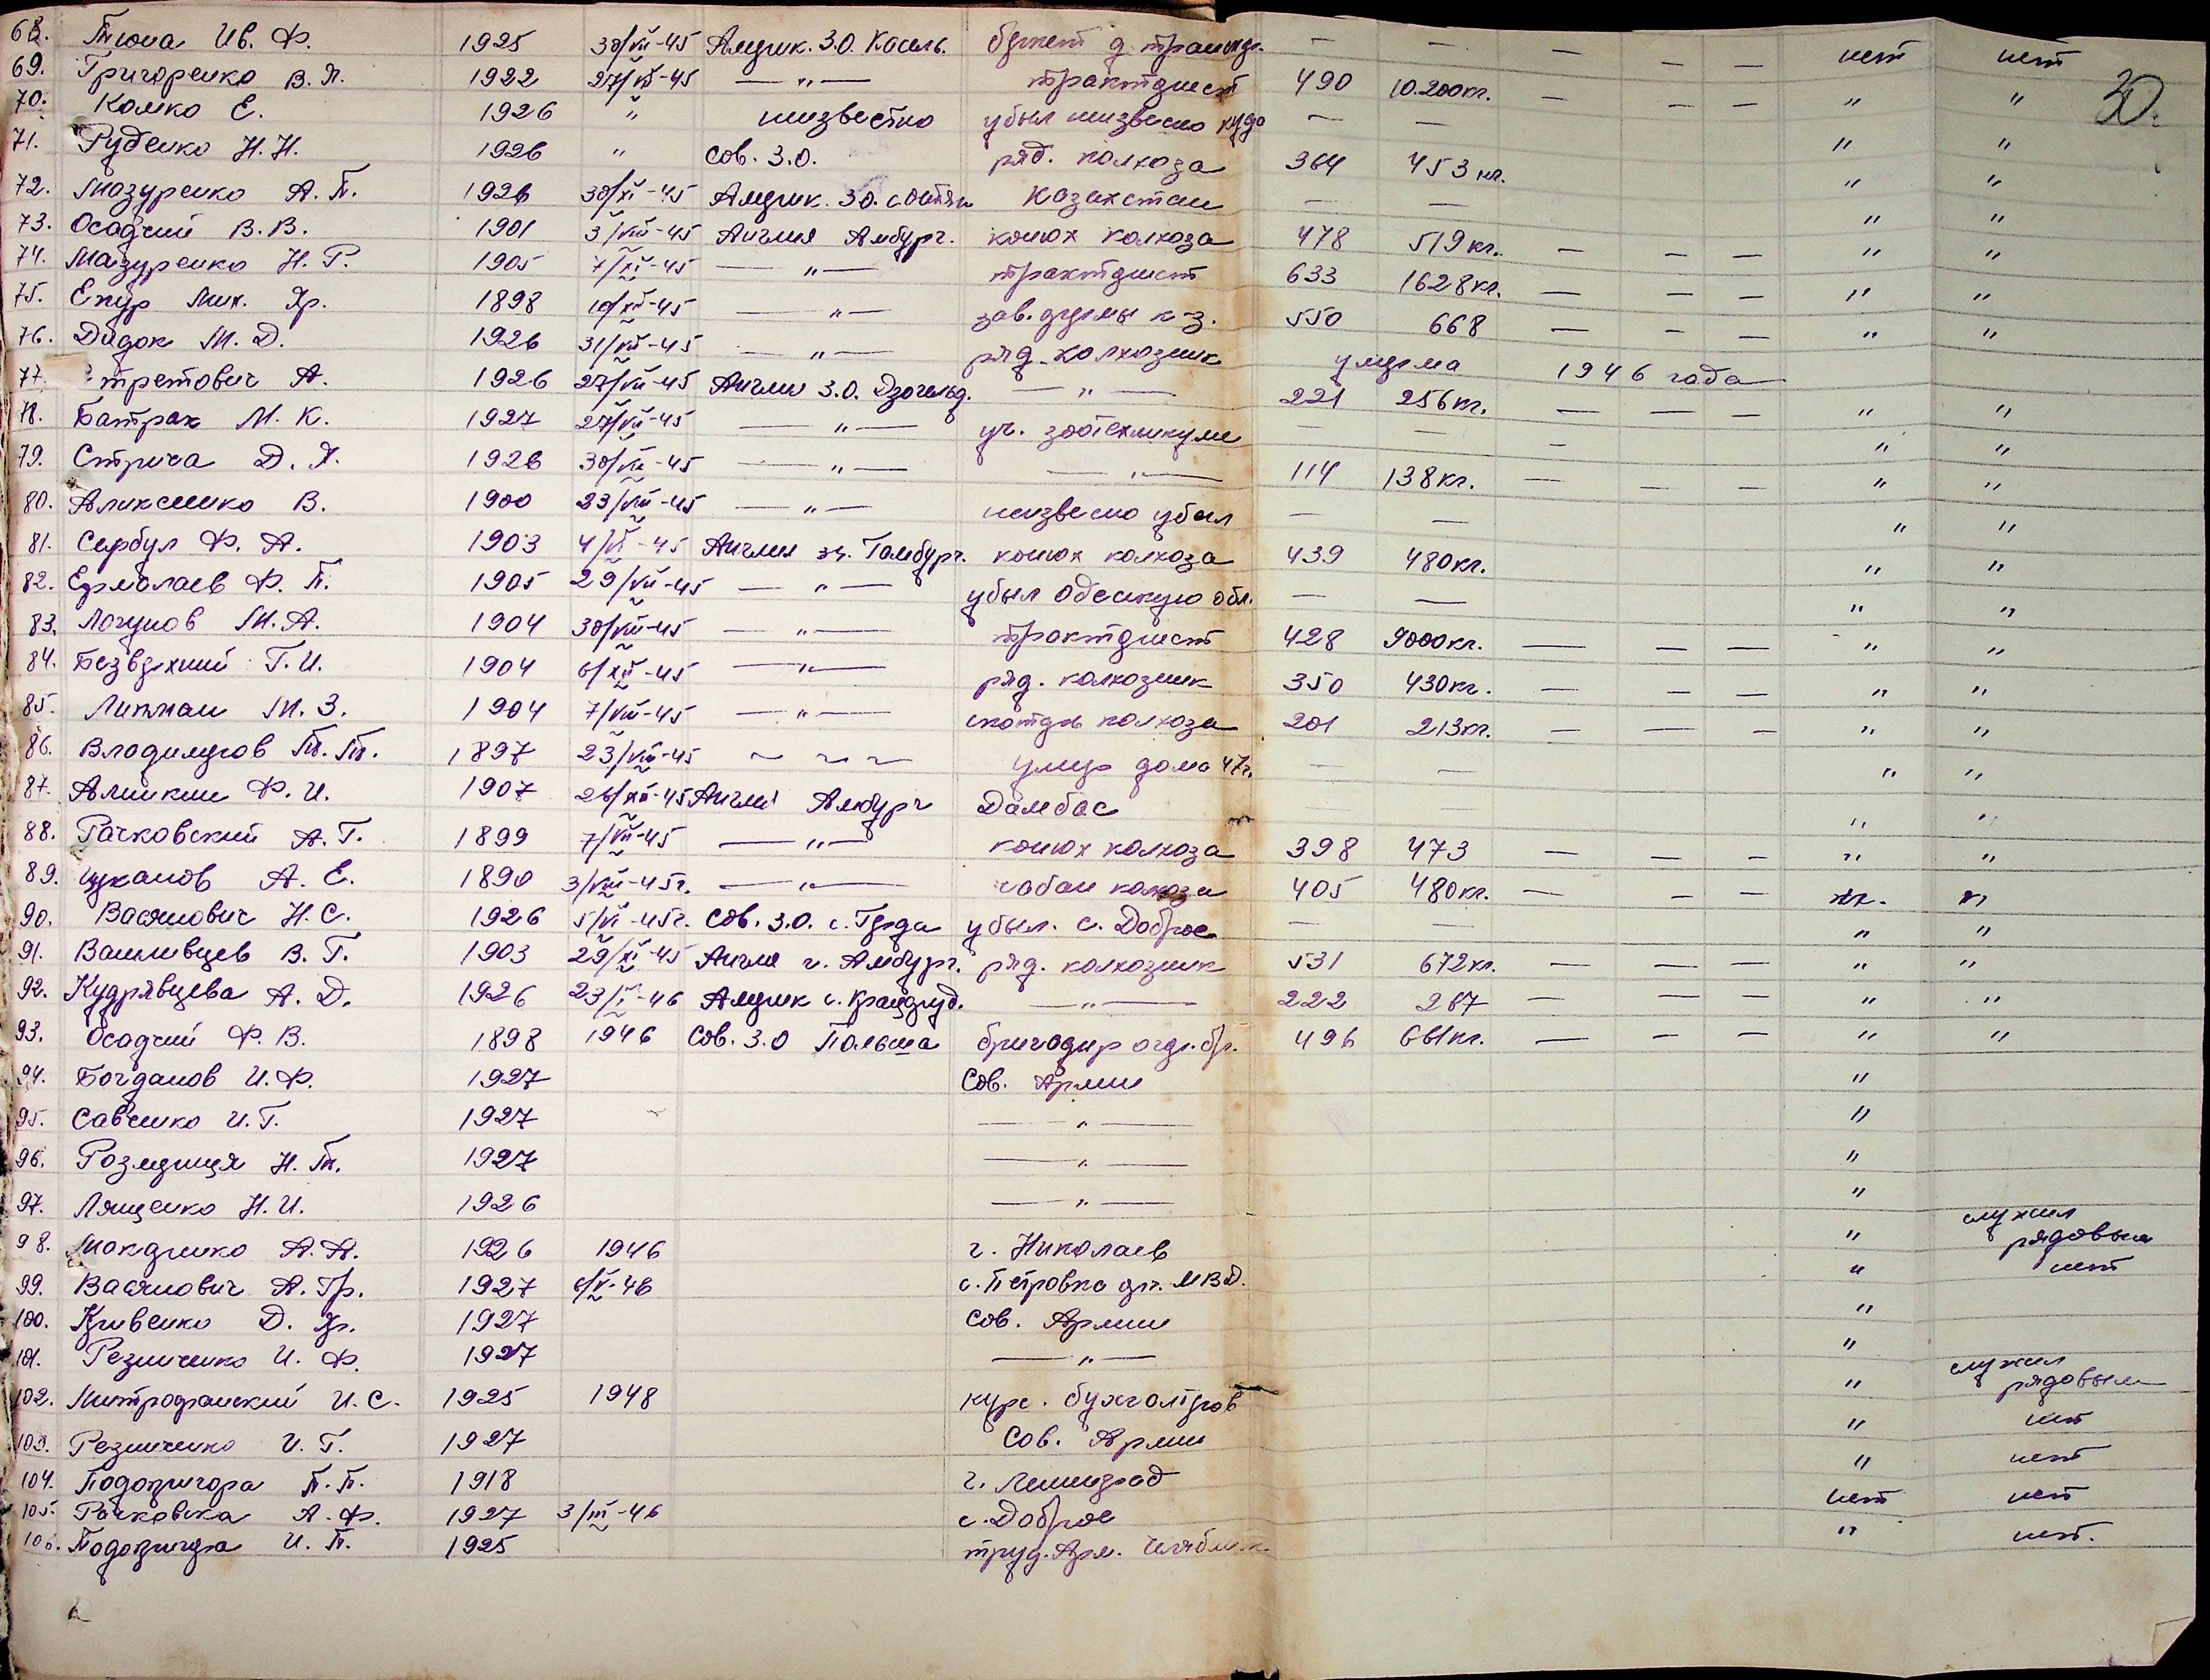 30.
68. Тюна Ив. Ф. 1925 30/VII-45 Америк. З.О. Касель. — — — — — нет нет
69. Григоренко В. Я. 1922 27/VII-45 — " — тракторист 490 10.200кг. — — — " "
70. Калко Е. 1926 " неизвестно убыл неизвесно куда — — " "
71. Руденко Н. Н. 1926 " Сов. З.О. ряд. колхоза 364 453 кг. " "
72. Мазуренко А. П. 1926 30/XI-45 Америк. З.О. Казахстан — — " "
73. Осадчий В. В. 1901 3/VIII-45 Англия Амбург. конюх колхоза 478 519 кг. — — — " "
74. Мазуренко Н. Г. 1905 7/XI-45 — " — тракторист 633 1628кг. — — — " "
75. Епур Мих. Яр. 1898 10/XII-45 — " — зав. фермы к-з. 550 668 — — — " "
76. Дидок М. Д. 1926 31/VII-45 — " — ряд. колхозник умерла 1946 года
77. третович А. 1926 27/VII-45 Англия З.О. — " — 221 256кг. — — — " "
78. Батрак М. К. 1927 27/VII-45 — " — уч. зоотехникуме — — " "
79. Стрига Д. Я. 1926 30/VII-45 — " — — " — 114 138кг. — — — " "
80. Алексеенко В. 1900 23/VIII-45 — " — неизвесно убыл — — " "
81. Сербул Ф. А. 1903 4/VI-45 Англия зн. Гамбург. конюх колхоза 439 480кг. " "
82. Ермолаев Ф. П. 1905 29/VII-45 — " — убыл Одескую обл. — — " "
83. Логунов М. А. 1904 30/VIII-45 — " — тракторист 428 9000кг. — — — " "
84. Безверхний Г. И. 1904 6/XII-45 — " — ряд. колхозник 350 430кг. — — — " "
85. Липман М. З. 1904 7/VIII-45 — " — колхоза 201 213кг. — — — " "
86. Владимеров П. П. 1897 23/VIII-45 ~ ~ ~ умер дома 47г. — — " "
87. Аликин Ф. И. 1907 26/XII-45 Англия Амбург Дамбас " "
88. Рачковский А. Г. 1899 7/VIII-45 — " — конюх колхоза 398 473 — — — " "
89. Цуканов А. Е. 1890 3/VIII-45г. — " — чабан колхоза 405 480кг. — — — " "
90. Васянович Н. С. 1926 5/VI-45г. Сов. З.О. г. Герда убыл. с. Доброе — — " "
91. Вашивцев В. Г. 1903 29/XI-45 Англия г. Амбург. ряд. колхозник 531 672кг. — — — " "
92. Кудрявцева А. Д. 1926 23/I-46 Америк г. — " — 222 267 — — — " "
93. Осадчий Ф. В. 1898 1946 Сов. З.О Польша бригадир огор. бр. 496 661кг. — — — " "
94. Богданов И. Ф. 1927 Сов. Армии "
95. Савченко И. Г. 1927 — " — "
96. Розмерица Н. П. 1927 — " — "
97. Лященко Н. И. 1926 — " — "
98. Макаренко А. А. 1926 1946 г. Николаев " служил рядовым
99. Васянович А. Гр. 1927 6/V-46 с. Петровка МВД. " нет
100. Кривенко Д. Яр. 1927 Сов. Армии "
101. Резниченко И. Ф. 1927 — " — "
102. Митрофанский И. С. 1925 1948 курс. бухгалтеров " служил рядовым
103. Резниченко И. Г. 1927 Сов. Армии " нет
104. Подопригора П. П. 1918 г. Ленинград " нет
105. Рачковска А. Ф. 1927 3/III-46 с. Доброе нет нет
106. Подопригора И. П. 1925 труд. Арм. " нет.